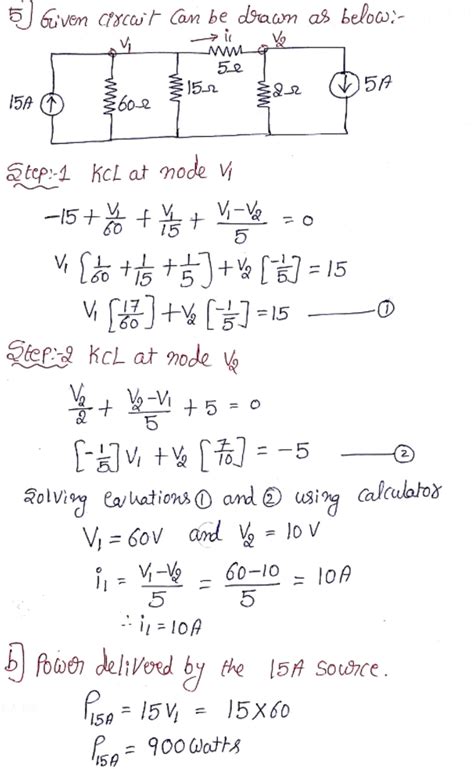 5] Given circuit can be drawn as below:-
V₁ → i₁ V₂
5Ω
15A 60Ω 15Ω 2Ω 5A
Step:-1 KCL at node V₁
-15 + V₁/60 + V₁/15 + (V₁-V₂)/5 = 0
V₁ [1/60 + 1/15 + 1/5] + V₂ [-1/5] = 15
V₁ [17/60] + V₂ [-1/5] = 15 —— ①
Step:-2 KCL at node V₂
V₂/2 + (V₂-V₁)/5 + 5 = 0
[-1/5] V₁ + V₂ [7/10] = -5 —— ②
Solving equations ① and ② using calculator
V₁ = 60V and V₂ = 10V
i₁ = (V₁-V₂)/5 = (60-10)/5 = 10A
∴ i₁ = 10A
b] Power delivered by the 15A source.
P₁₅A = 15V₁ = 15×60
P₁₅A = 900 watts